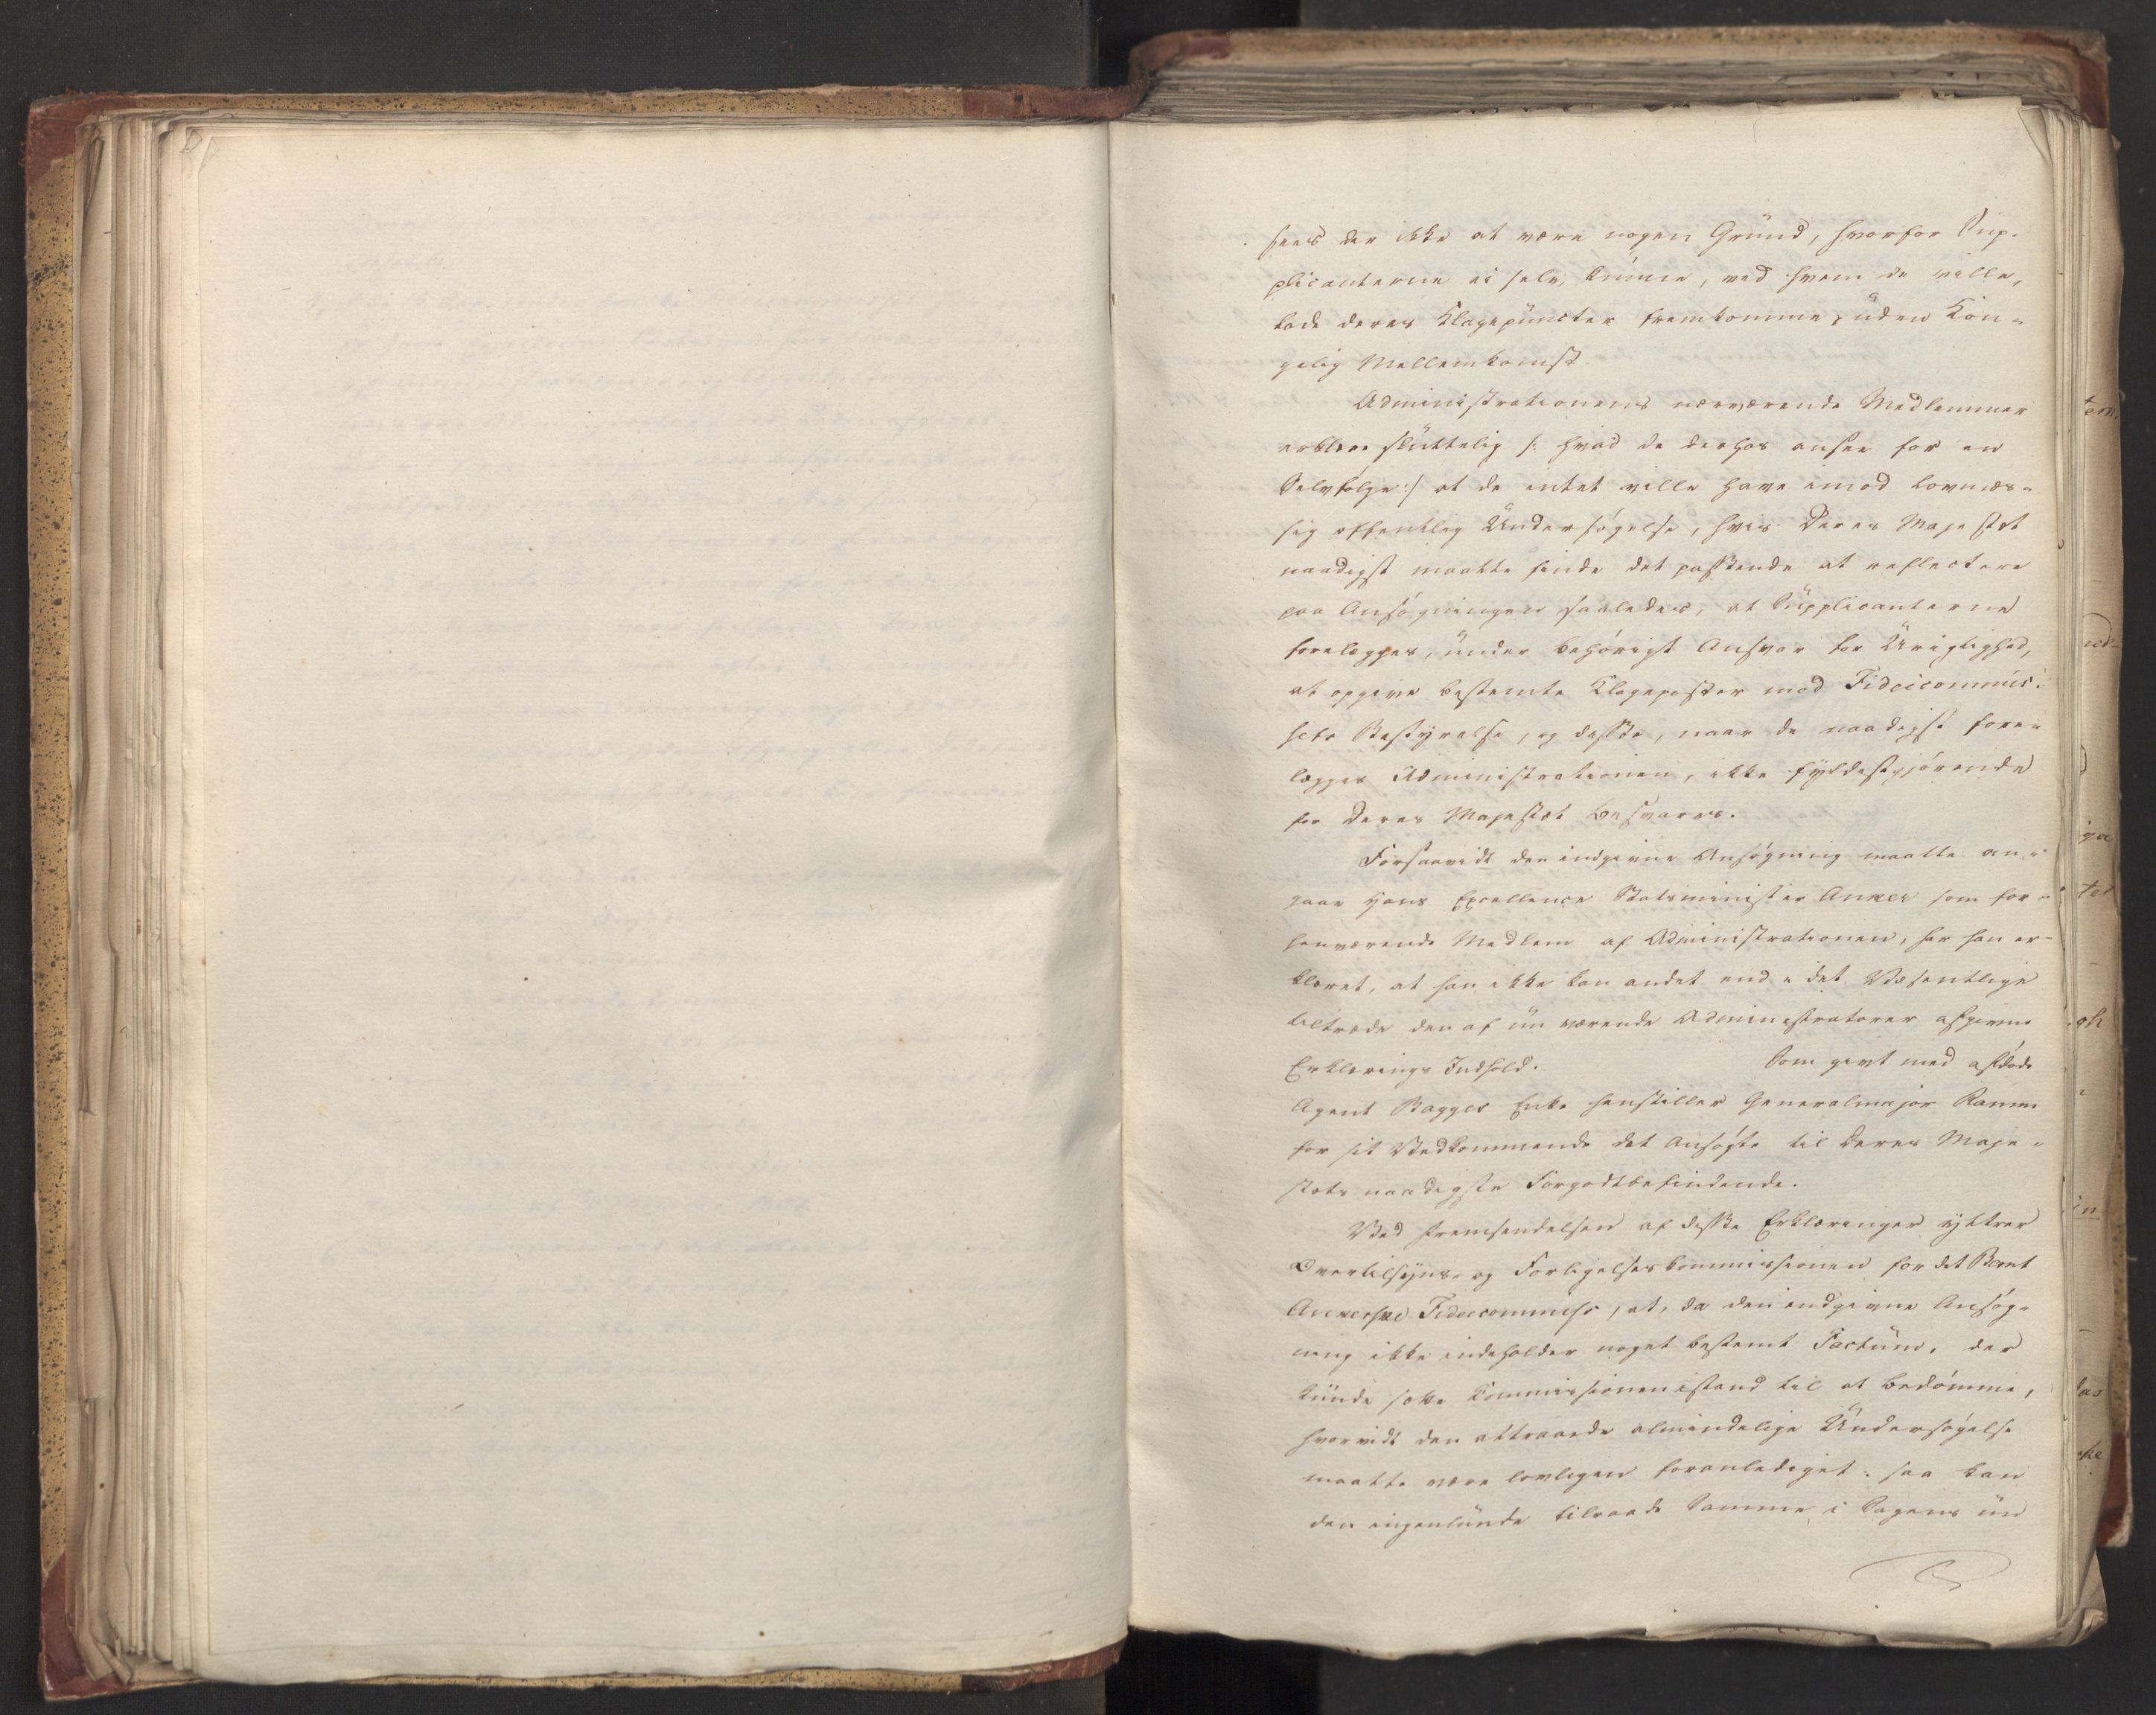 sees der ikke at være nogen Grund, hvorfor Sup-
plicanterne ei selv kunne, ved hvem de ville,
lade deres Klagepuncter fremkomme, uden Kon-
gelig Mellemkomst.
Administrationens nærværende Medlemmer
erklære sluttelig /: hvad de derhos ansee for en
Selvfølge :/ at de intet ville have imod lovmæs-
sig offentlig Undersøgelse, hvis Deres Majestæt
naadigst maatte finde det passende at reflectere
paa Ansøgningen saaledes, at Supplicanterne
forelægges, under behørigt Ansvar for Urigtighed,
at opgive bestemte Klageposter mod Fideicommis-
sets Bestyrelse, og disse, naar de naadigst fore-
lægges Administrationen, ikke fyldestgjørende
for Deres Majestæt besvares.
Forsaavidt den indgivne Ansøgning maatte an-
gaae Hans Excellence Statsminister Anker som for-
henværende Medlem af Administrationen, har han er-
klæret, at han ikke kan andet end i det Væsentlige
tiltræde den af nu værende Administratorer afgivne
Erklærings Indhold. Som givt med afdøde
Agent Bagges Enke henstiller Generalmajor Ramm
for sit Vedkommende det Ansøgte til Deres Maje-
stæts naadigste Forgodtbefindende.
Ved Fremsendelsen af disse Erklæringer yttrer
Overtilsyns- og Forligelseskommissionen for det Bernt
Ankerske Fideicommiss, at, da den indgivne Ansøg-
ning ikke indeholder noget bestemt Factum, der
kunde sætte Kommissionen istand til at bedømme,
hvorvidt den attraaede almindelige Undersøgelse
maatte være lovligen foranlediget: saa kan
den ingenlunde tilraade Samme i Sagens nu